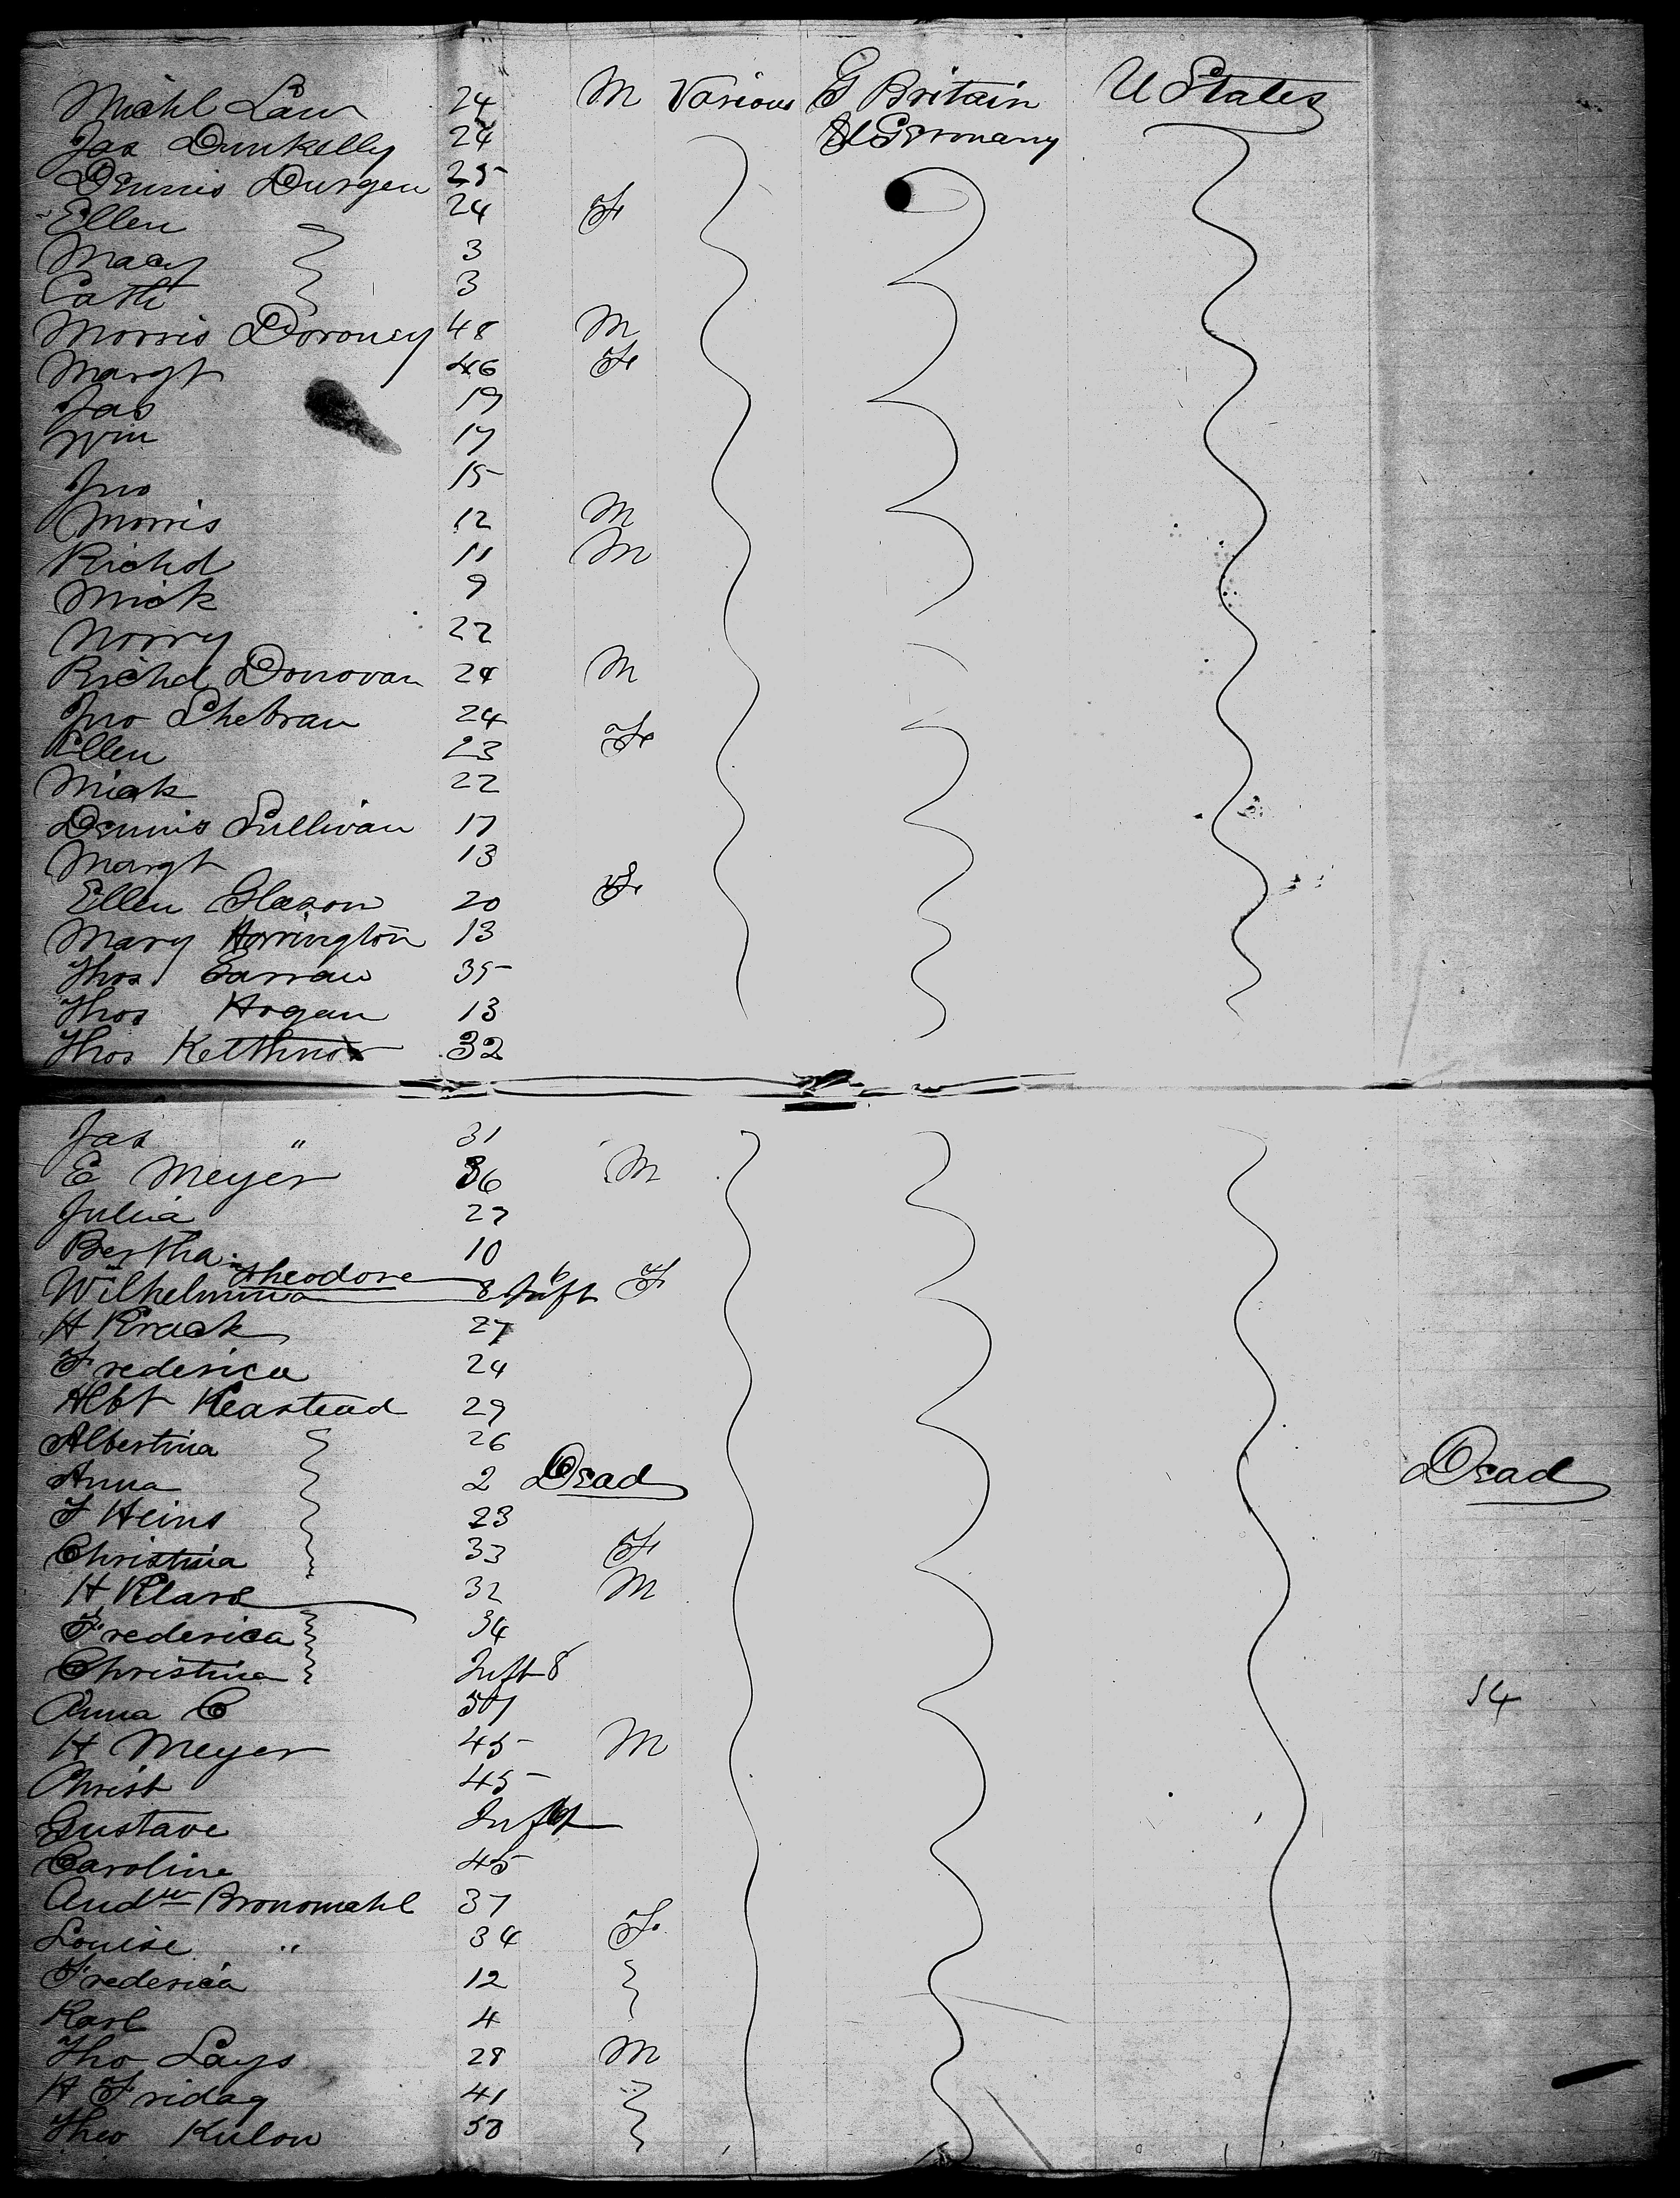 Michl Law 24 M Various G Britain U States
Jas Dunkelly 24 & Germany
Dennis Durgen 25
Ellen 24 F
Macy 3
Cath 3
Morris Doroney 48 M
Margt 46 F
Jas 19
Wm 17
Jno 15
Morris 12 M
Richd 11 M
Mick 9
Norry 22
Richd Donovan 24 M
Jno 24
Ellen 23 F
Mick 22
Dennis Sullivan 17
Margt 13
Ellen Glason 20 F
Mary Harrington 13
Thos 35
Thos Hogan 13
Thos 32
Jas " 31
E Meyer 36 M
Julia 27
Bertha 10
Theodore
Wilhelmina 8 Inft 6 F
H Krack 27
Frederica 24
Albt Keastead 29
Albertina 26
Anna 2 Dead Dead
F Heins 23
Christina 33 F
H Klare 32 M
Frederica 34
Christina Inft 8
Anna C 54
H Meyer 45 M
Christ 45
Gustave Inft
Caroline 45
Andw Bronomahl 37
Louise " 34 F
Frederica 12
Karl 4
Tho Lays 28 M
H Fridag 41
Theo Kulow 50